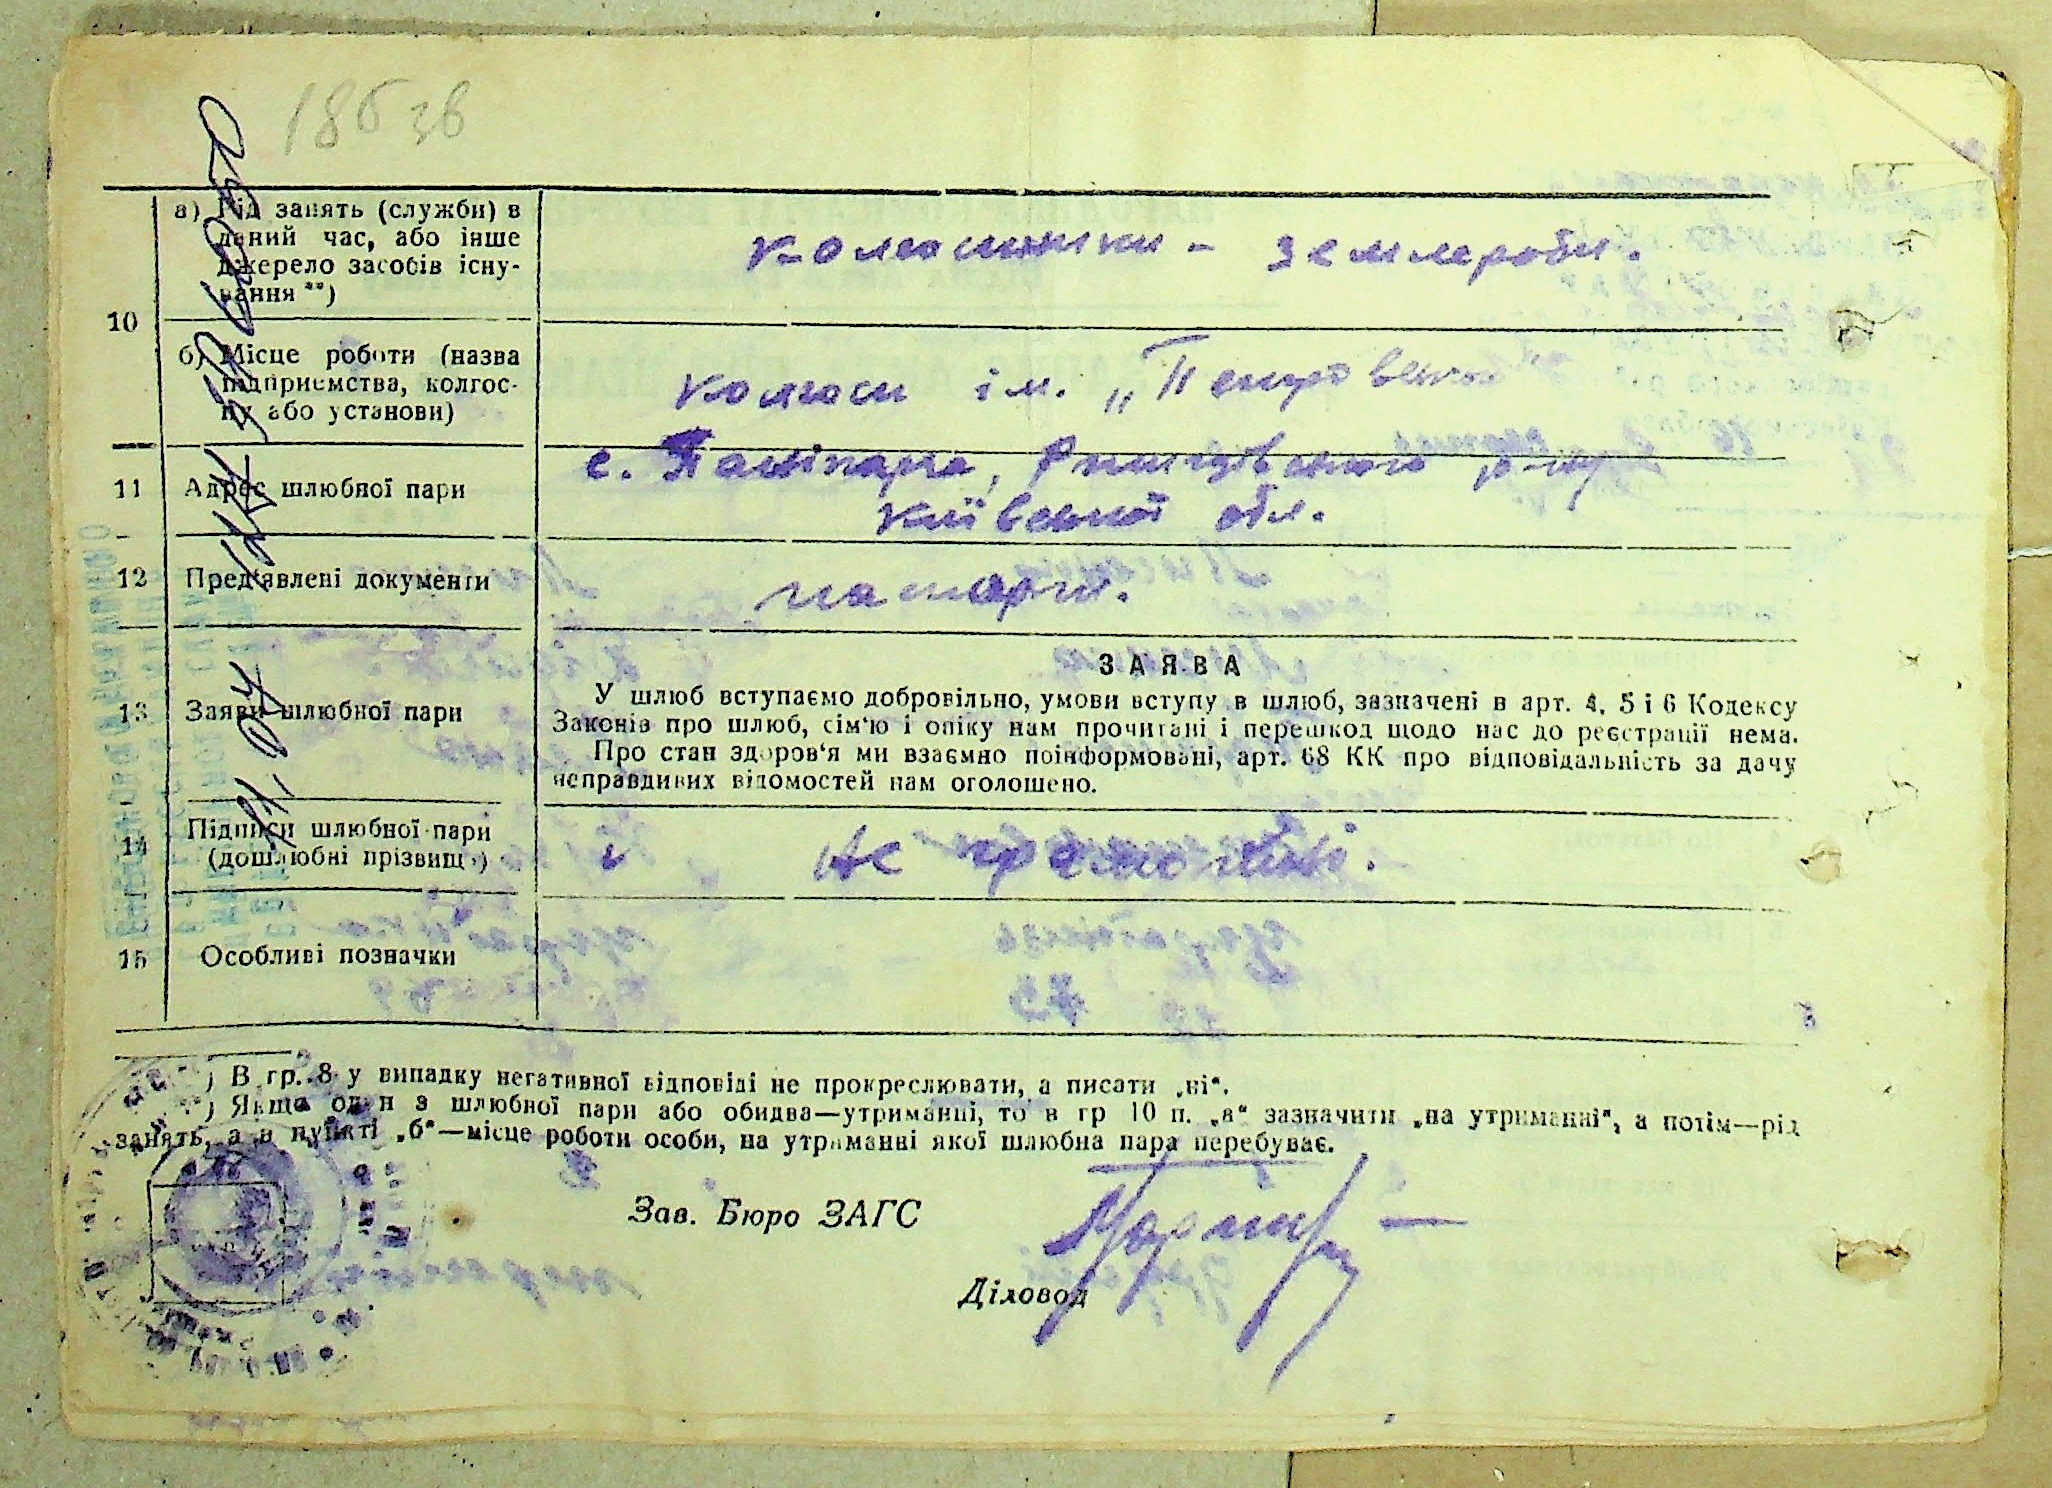 186 зв
10
а) Рід занять (служби) в
даний час, або інше
джерело засобів існу-
вання **)
колгоспники - землероби.
б) Місце роботи (назва
підприємства, колгос-
пу або установи)
колгосп ім. „Петровського"
11 Адрес шлюбної пари
с. Ржищівського р-ну
Київської обл.
12 Пред'явлені документи
паспорти.
ЗАЯВА
13 Заяви шлюбної пари
У шлюб вступаємо добровільно, умови вступу в шлюб, зазначені в арт. 4, 5 і 6 Кодексу
Законів про шлюб, сім'ю і опіку нам прочитані і перешкод щодо нас до реєстрації нема.
Про стан здоров'я ми взаємно поінформовані, арт. 68 КК про відповідальність за дачу
неправдивих відомостей нам оголошено.
14 Підписи шлюбної пари
(дошлюбні прізвища)
не грамотні.
15 Особливі позначки
*) В гр. 8 у випадку негативної відповіді не прокреслювати, а писати „ні".
**) Якщо один з шлюбної пари або обидва—утриманні, то в гр 10 п. „а" зазначити „на утриманні", а потім—рід
занять, а в пункті „б"—місце роботи особи, на утриманні якої шлюбна пара перебуває.
Зав. Бюро ЗАГС
Діловод